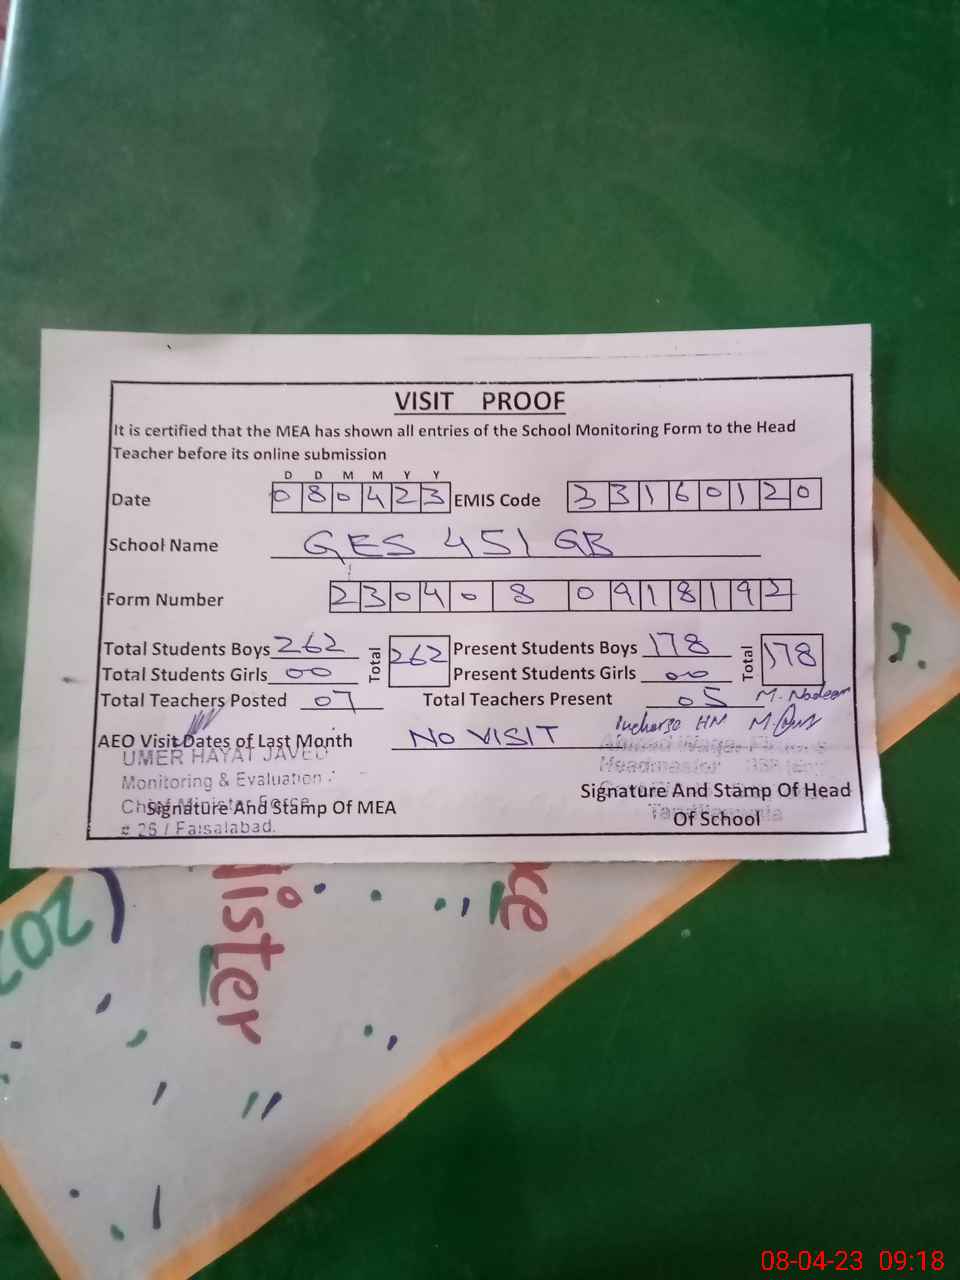 VISIT PROOF
It is certified that the MEA has shown all entries of the School Monitoring Form to the Head
Teacher before its online submission
D D M M Y Y
Date 080423 EMIS Code 33160120
School Name GES 451 GB
Form Number 2304080918192
Total Students Boys 262 Total 262 Present Students Boys 178 Total 178
Total Students Girls 00 Present Students Girls 00
Total Teachers Posted 07 Total Teachers Present 05 M. Nadeem
Incharge HM
AEO Visit Dates of Last Month NO VISIT
UMER HAYAT JAVED
Monitoring & Evaluation
Chief Minister Force
# 26 / Faisalabad.
Signature And Stamp Of MEA
Headmaster
Signature And Stamp Of Head
Of School
202
ister
ce
J.
08-04-23 09:18